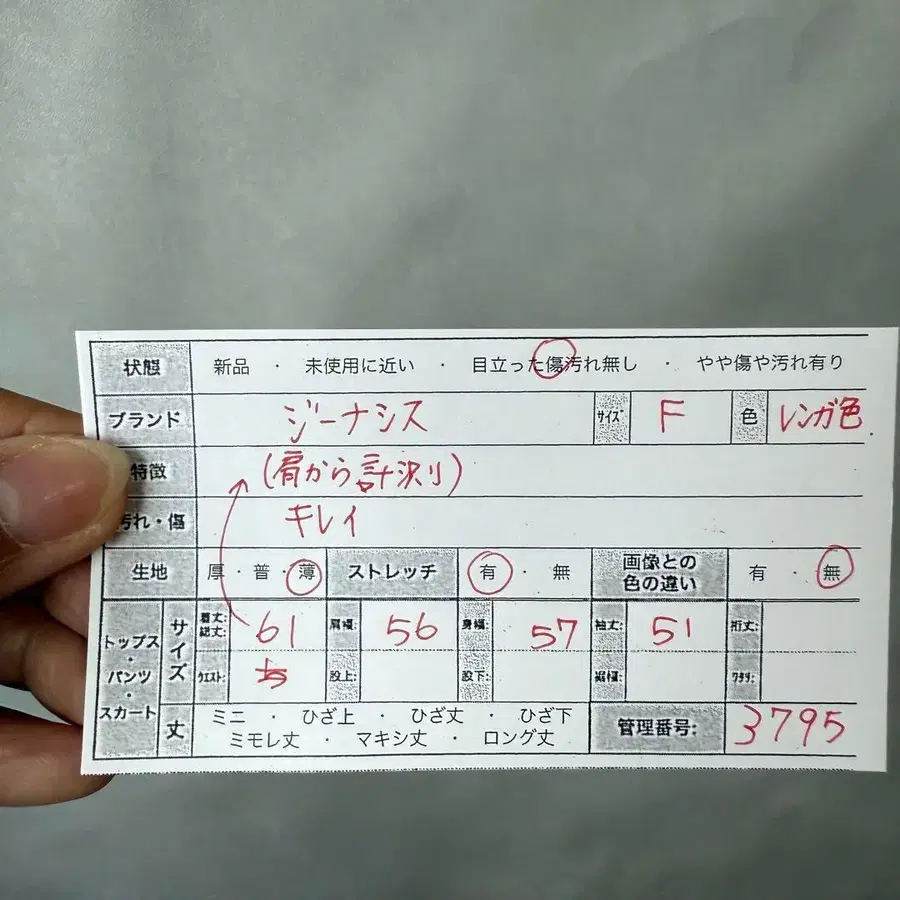 状態 新品 ・ 未使用に近い ・ 目立った傷汚れ無し ・ やや傷や汚れ有り
ブランド ジーナシス サイズ F 色 レンガ色
特徴 (肩から計測り)
汚れ・傷 キレイ
生地 厚・普・薄 ストレッチ 有・無 画像との色の違い 有・無
トップス・パンツ・スカート サイズ 着丈: 総丈: 61 肩幅: 56 身幅: 57 袖丈: 51 裄丈:
ウエスト: 股上: 股下: 裾幅: ワタリ:
丈 ミニ ・ ひざ上 ・ ひざ丈 ・ ひざ下
ミモレ丈 ・ マキシ丈 ・ ロング丈
管理番号: 3795